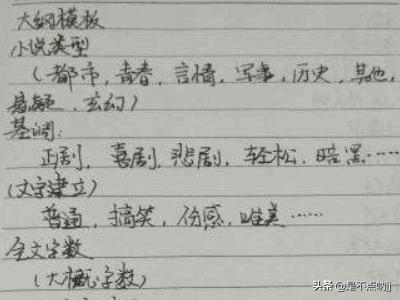 大纲模板
小说类型
(都市,青春,言情,军事,历史,其他,
悬疑,玄幻)
基调:
正剧,喜剧,悲剧,轻松,暗黑……
(文字建立)
普通,搞笑,伤感,唯美……
全文字数
(大概字数)
头条@是不点哟jj